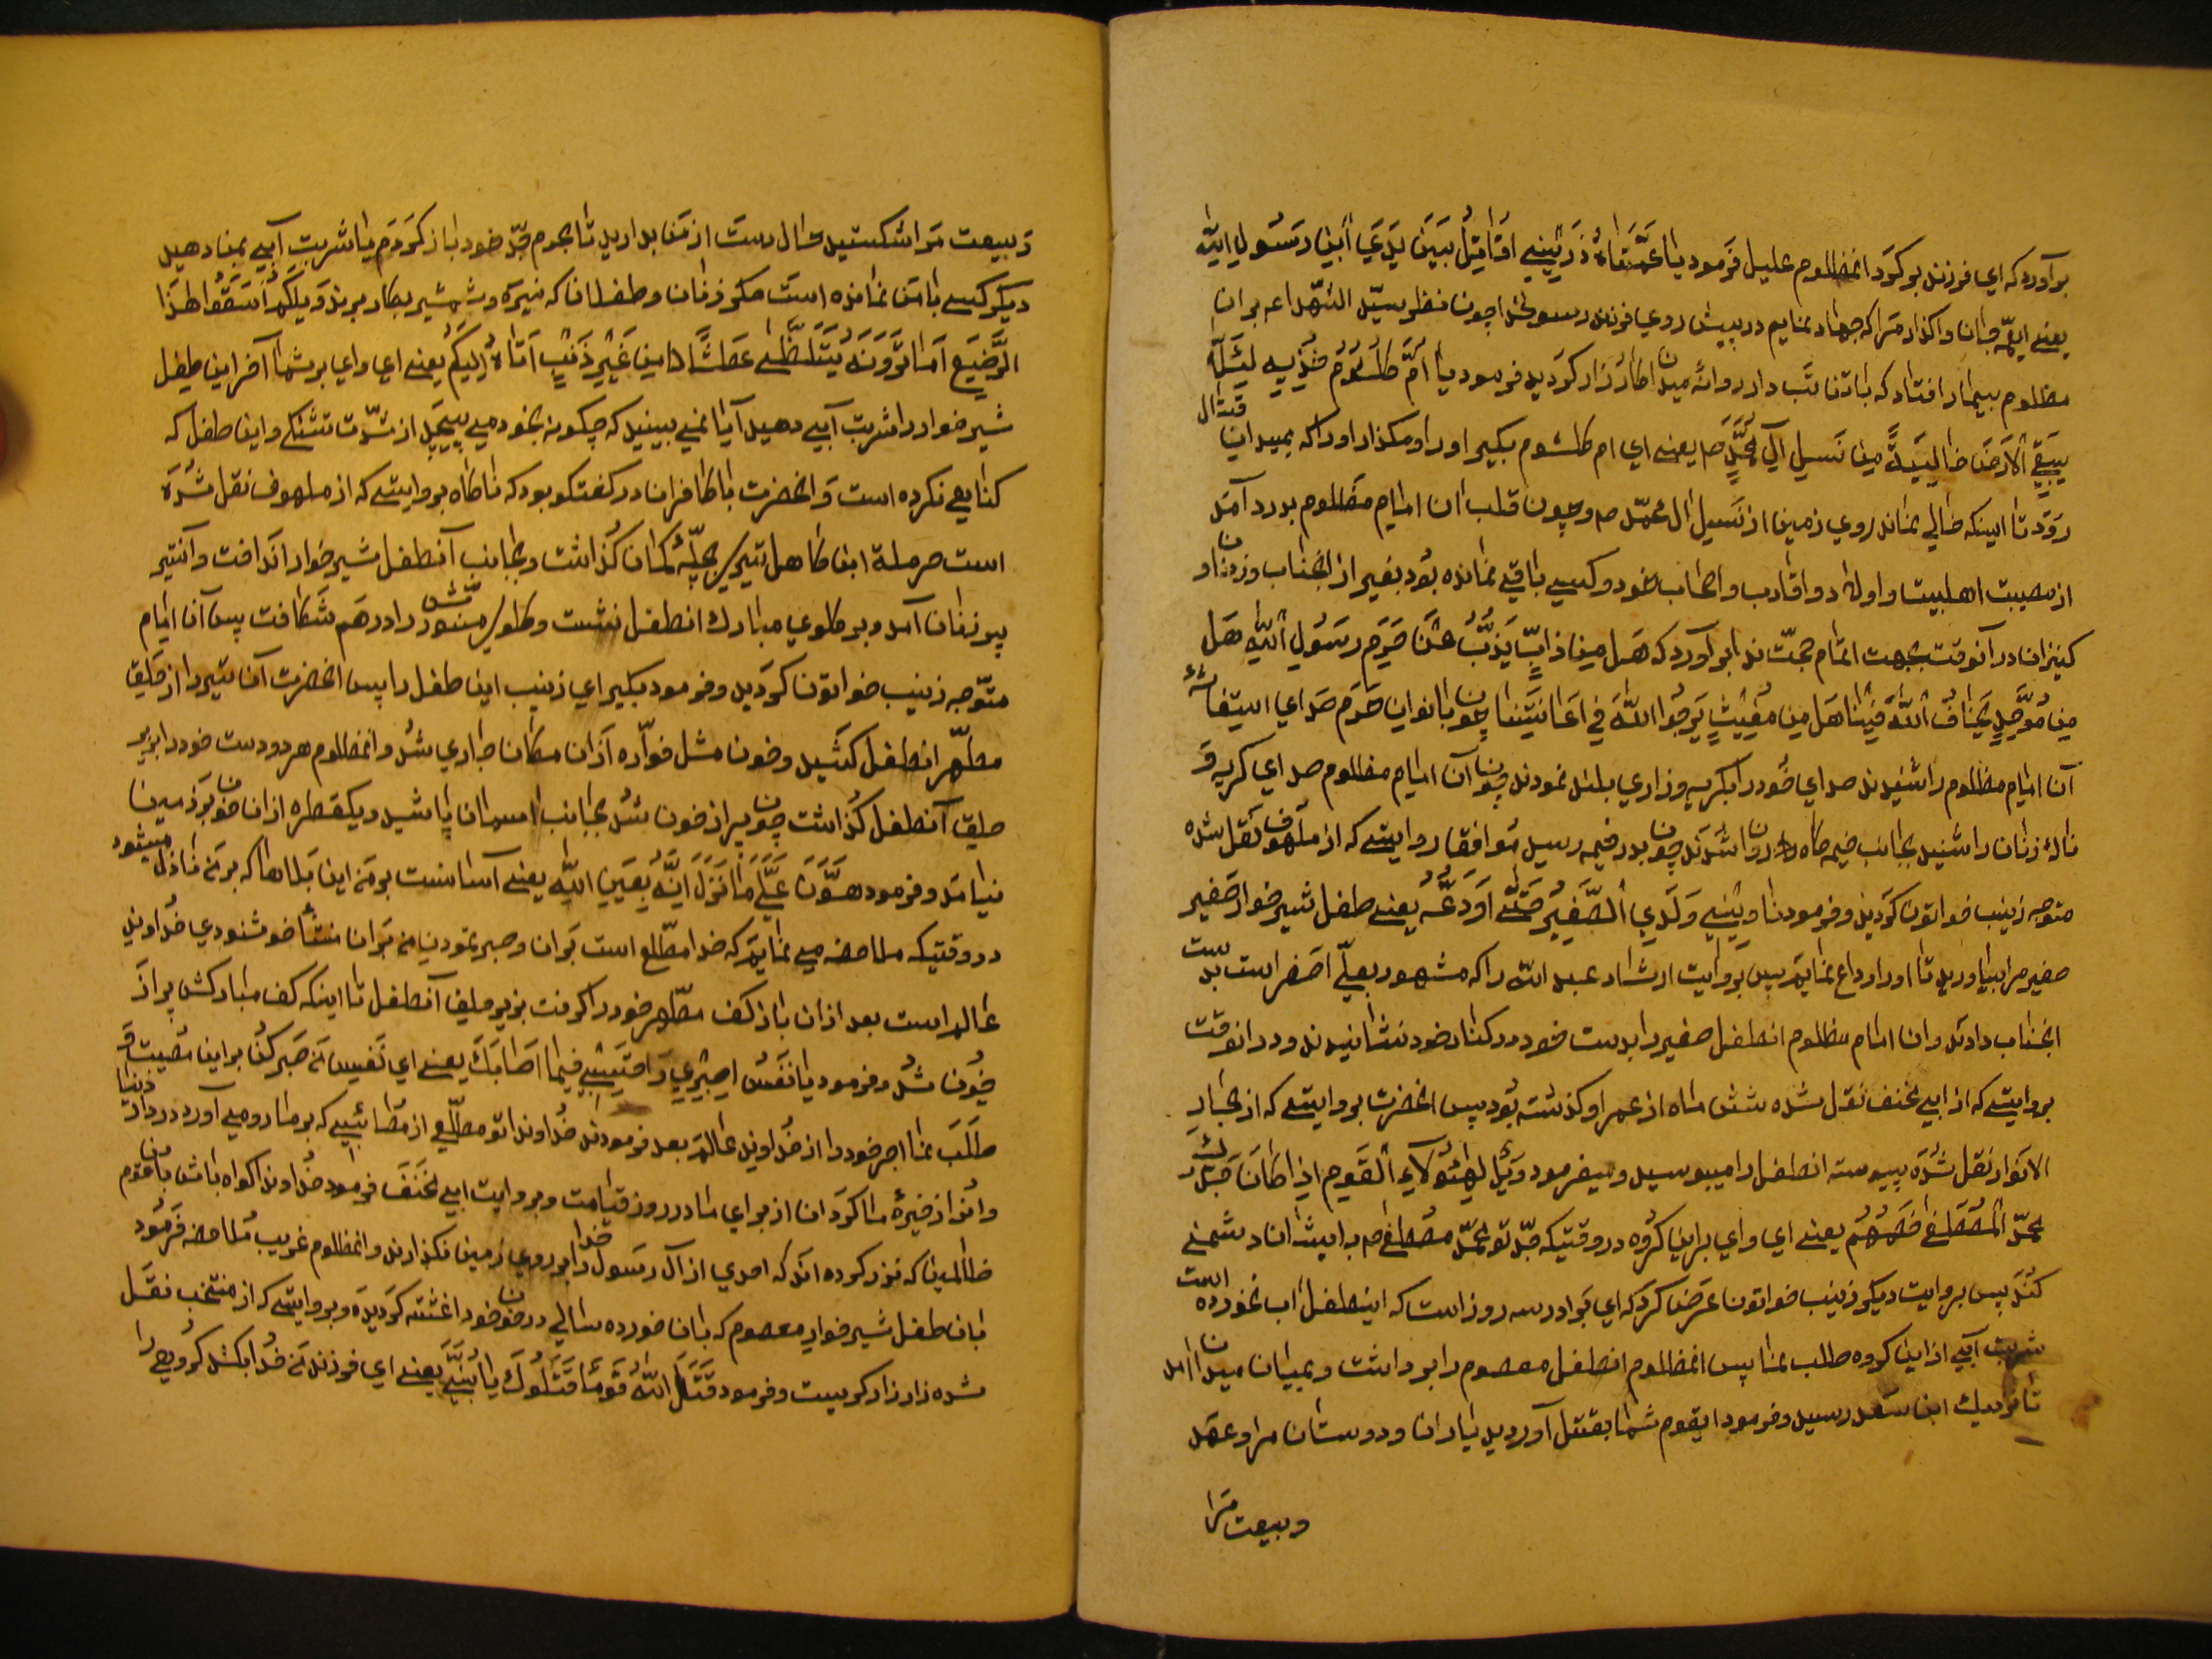 برآورد که اي فرزند برکرد انمظلوم عليل فرمود يا عَمَّتَاهُ ذَرِيْنِي اُقَاتِلْ بَيْنَ يَدَيِ ابْنِ رَسُولِ اللّه
يعني ايعمّه جان واکذار مرا که جهاد نمايم در پيش روي فرزند رسولخدا چون نظر سيّد الشّهدا عم بر ان
مظلوم بيمار افتاد که باتن تب دار روانهٔ ميدان کارزار کرديد فرمود يا اُمَّ کُلْثُوُمْ خُذِيهِ لِئَلّا
يَبْقَي الْاَرْضَ خَالِيَةً مِنْ نَسِلِ آلِ مُحَمَّدٍ ص يعني اي ام کلثوم بکير او را و مکذار او را که بميدان قتال
رود تا اينکه خالي نماند روي زمين از نسل ال محمّد ص و چون قلب ان امام مظلوم بدرد آمد
از مصيبت اهلبيت و اولاد و اقارب و اصحاب خود و کسي باقي نمانده بود بغير از انجناب و زنان و
کنيزان در آنوقت بجهت اتمام حجّت ندا برآورد که هَل مِنْ ذَابٍّ يَذُبُّ عَنْ حَرَمِ رَسُولِ اللّٰهِ هَل
مِنْ مُوَحِّدٍ يَخَافُ اللّٰهَ فِيْنَا هَل مِنْ مُغِيْثٍ يَرْجُوا اللّٰهَ فِي اِغَاثَتِنَا چون بانوان حرم صداي استغاثهٔ
آن امام مظلوم را شنيدند صداي خود را بکريه و زاري بلند نمودند چون آن امام مظلوم صداي کريه و
نالهٔ زنان را شنيد بجانب خيمه کاه روان شدند چون بدر خيمه رسيد موافق روايتي که از ملهوف نقل شده
متوجه زينب خواتون کرديد و فرمود ناوِيْنِي وَلَدِي الصَّغِيْرَ حَتّٰي اُوَدِّعَهُ يعني طفل شير خوار صغير
صغير مرا بياوريد تا او را وداع نمايم پس بروايت ارشاد عبد اللّه را که مشهور بعلّي اصغر است بدست
انجناب دادند و ان امام مظلوم انطفل صغير را بدست خود در کنار خود نشانيدند و در انوقت
بروايتي که از ابي مخنف نقل شده شش ماه از عمر او کذشته بود پس انحضرت بروايتي که از بحار
الانوار نقل شده پيوسته انطفل را ميبوسيد و ميفرمود وَيْلٌ لِهٰؤُلاءِ الْقَومِ اِذَا کَانَ جَدُّكَ
مُحَمَّدٌ الْمُصْطَفَي خَصْمَهُمْ يعني اي واي براين کروه در وقتيکه جدّ تو محمّد مصطفي ص با ايشان دشمني
کند پس بروايت ديکر زينب خواتون عرض کرد که اي برادر سه روز است که اينطفل اب نخورده است
شربت آبي از اين کروه طلب نما پس انمظلوم انطفل معصوم را برداشت و بميان ميدان امد
تا نزديك ابن سعد رسيد و فرمود ايقوم شما بقتل آورديد ياران و دوستان مرا و عهد
وبيعت مرا
وبيعت مرا شکستيد حال دست از من بداريد تا بحرم جدّ خود باز کردم يا شربت آبي بمن دهيد
ديکر کسي با من نمانده است مکر زنان و طفلان که نيزه و شمشير بکار برند وَيْلَکُمْ اُسْقُوا هٰذَا
الرَّضِيْعَ اَمَا تَرَوْنَهُ يَتَلَظّٰي عَطَشًا مِنْ غَيْرِ ذَنْبٍ اَتَاهُ اِلَيْکُمْ يعني اي واي بر شما آخر اين طفل
شير خوار را شربت آبي دهيد آيا نمي بينيد که چکونه بخود مي پيچد از شدّت تشنکي و اين طفل که
کناهي نکرده است و انحضرت با کافران در کفتکو بود که ناکاه بروايتي که از ملهوف نقل شده
است حرملة ابن کاهل تير بچلّهٔ کمان کذاشت و بجانب آنطفل شير خوار انداخت و آنتير
پرزنان آمد و بر کلوي مبارك انطفل نشست و کلويش را درهم شکافت پس آن امام
متوّجه زينب خواتون کرديد و فرمود بکير اي زينب اين طفل را پس انحضرت آن تير را از حلق
مطهّر انطفل کشيد و خون مثل فوّاره از ان مکان جاري شد و انمظلوم هر دو دست خود را بزير
حلق آنطفل کذاشت چون پر از خون شد بجانب اسمان پاشيد و يکقطره از ان خون بر زمين
نيامد و فرمود هَوَّنَ عَلَيَّ مَا نَزَلَ اَنَّهُ بِعَيْنِ اللّٰهِ يعني آسانست بر من اين بلاها که بر من نازل ميشود
در وقتيکه ملاحضه مي نمايم که خدا مطّلع است بر ان و صبر نمودن من بر ان منشأ خوشنودي خداوند
عالم است بعد از ان باز کف مطّهر خود را کرفت بزير حلق آنطفل تا اينکه کف مبارکش پر از
خون شد و فرمود يا نَفْسُ اصْبِرِي وَ احْتَسِبِي فِيْمَا اَصَابَكِ يعني اي نفس من صبر کن بر اين مصيبت و
طلب نما اجر خود را از خداوند عالم بعد فرمودند خداوندا تو مطّلعي از مصائبي که بر ما روميآورد در دار دنيا
و انرا ذخيرهٔ ما کردان از براي ما در روز قيامت و بروايت ابي مخنف فرمود خداوندا کواه باش باين قوم
ظالم که نذر کرده اند که احدي از آل رسول خدا را بر روي زمين نکذارند و انمظلوم غريب ملاحضه فرمود
بان طفل شير خوار معصوم که بان خورده سالي در خون خود اغشته کرديده و بروايتي که از منتخب نقل
شده زار زار کريست و فرمود قَتَلَ اللّٰهُ قَوْمًا قَتَلُوكَ يا بُنَيَّ يعني اي فرزند من خدا بکشد کروهي را